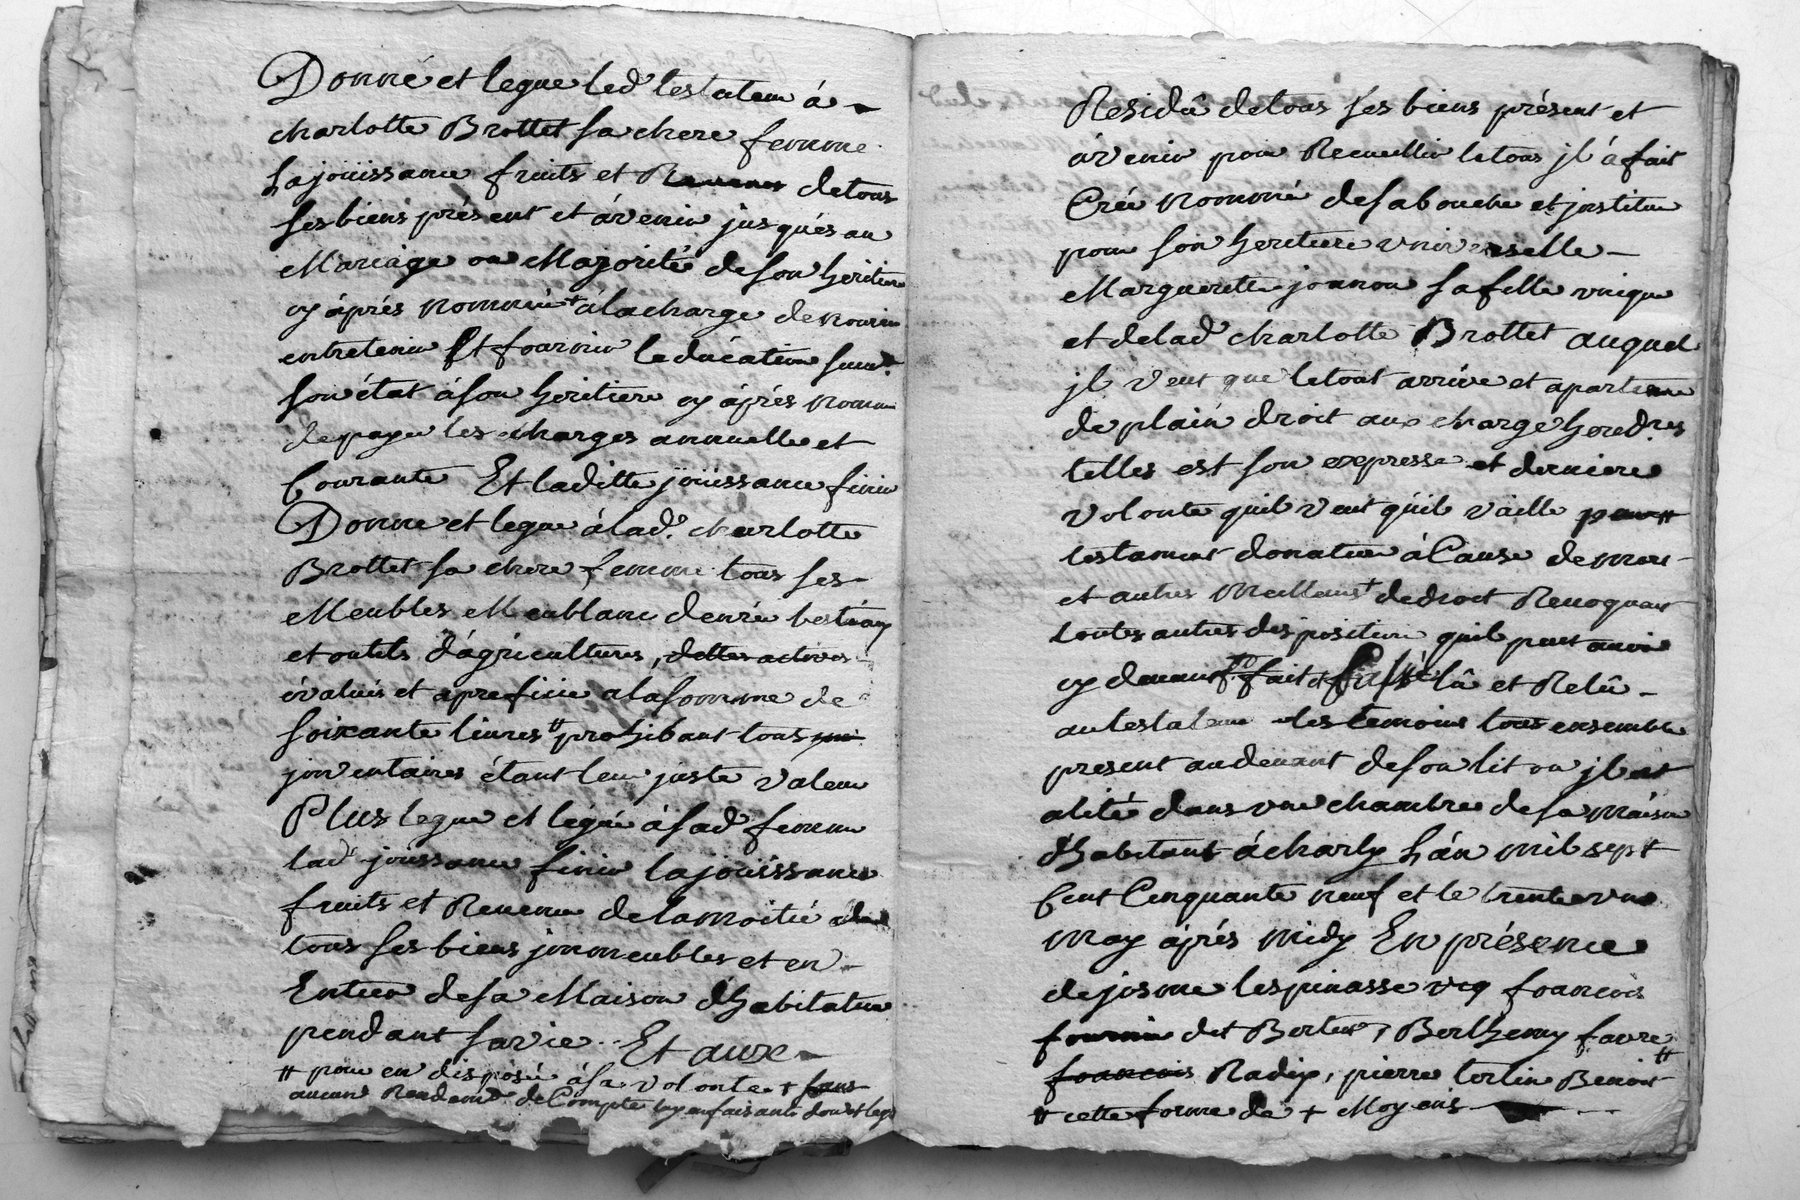 Donné et legue led testateur á
charlotte Brottet sa chere femme
La joüissance fruits et Revenus detous
ses biens présent et ávenir jusqués au
Mariage ou Majorité deson heritiere
cy áprés nommeé + álacharge denourir
entretenir Et fournir leducation suivt
son état áson heritiere cy áprés nommé
depayer les charges annuelle et
Courante Et laditte joüissance finir
Donne et legue álad. charlotte
Brottet sa chere femme tous ses
Meubles Meublant denrée bestiaux
et outils dágricultures, dettes actives
évalués et aprefiée alasomme de
soixante livres # prohibant tous
jnventaires étant leur juste valeur
Plus legue et légué ásad femme
lad joüissance finir lajoüissance
fruits et Revenu delamoitié de
tous ses biens jmmeubles et en
Entier desa Maison dhabitation
pendant savie. Et aux
# pour en disposé ása volonte + sans
aucun Rendemt. de Compte luy enfaisant don et legs
Residû detous ses biens présent et
ávenir pour Recueillir letous jl á fait
Créé nommé desabouche et jnstitue
pour son heritiere universelle
Marguerite joannon sa fille unique
et delad charlotte Brottet auquel
jl veut que letout arrive et apartienne
de plain droit aux charge hereds.res
telles est son expresse et derniere
volonte quil veut quil vaille par #
testament donation á Cause demort
et autres Meilleurs + dedroit Revoquant
toutes autres disposition quil peut avoir
cy devant fait fait et lû et Relû
autestateur les temoins tous ensemble
present audevant deson lit ou jl est
alité dans une chambre desa maison
dhabitant ácharly Lán mil sept
Cent Cinquante neuf et le trente un
May áprés midy En présence
dejosme lespinasse vcq francois
fournier det Bertet, Berthemy favre
francois Radix, pierre tortin Benoit #
# cette forme de + Moyens